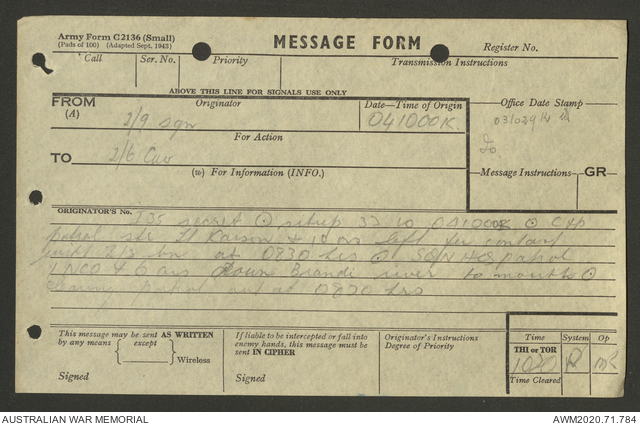 Army Form C2136 (Small)
(Pads of 100) (Adapted Sept. 1943)
MESSAGE FORM
Register No.
Call Ser. No. Priority Transmission Instructions
ABOVE THIS LINE FOR SIGNALS USE ONLY
FROM Originator Date—Time of Origin Office Date Stamp
(A) 2/9 sqn 041000K
For Action
TO 2/6 Cav
(w) For Information (INFO.) Message Instructions GR
ORIGINATOR'S No. secret sitrep to 041000K
patrol Lt 4 left for contact
2/3 bn at 0830 hrs patrol
1 NCO 4 6 ors down Brandi river to mouth
patrol out at 0830 hrs
This message may be sent AS WRITTEN
by any means except
Wireless
Signed
If liable to be intercepted or fall into
enemy hands, this message must be
sent IN CIPHER
Signed
Originator's Instructions
Degree of Priority
Time System Op
THI or TOR
Time Cleared
AUSTRALIAN WAR MEMORIAL
AWM2020.71.784